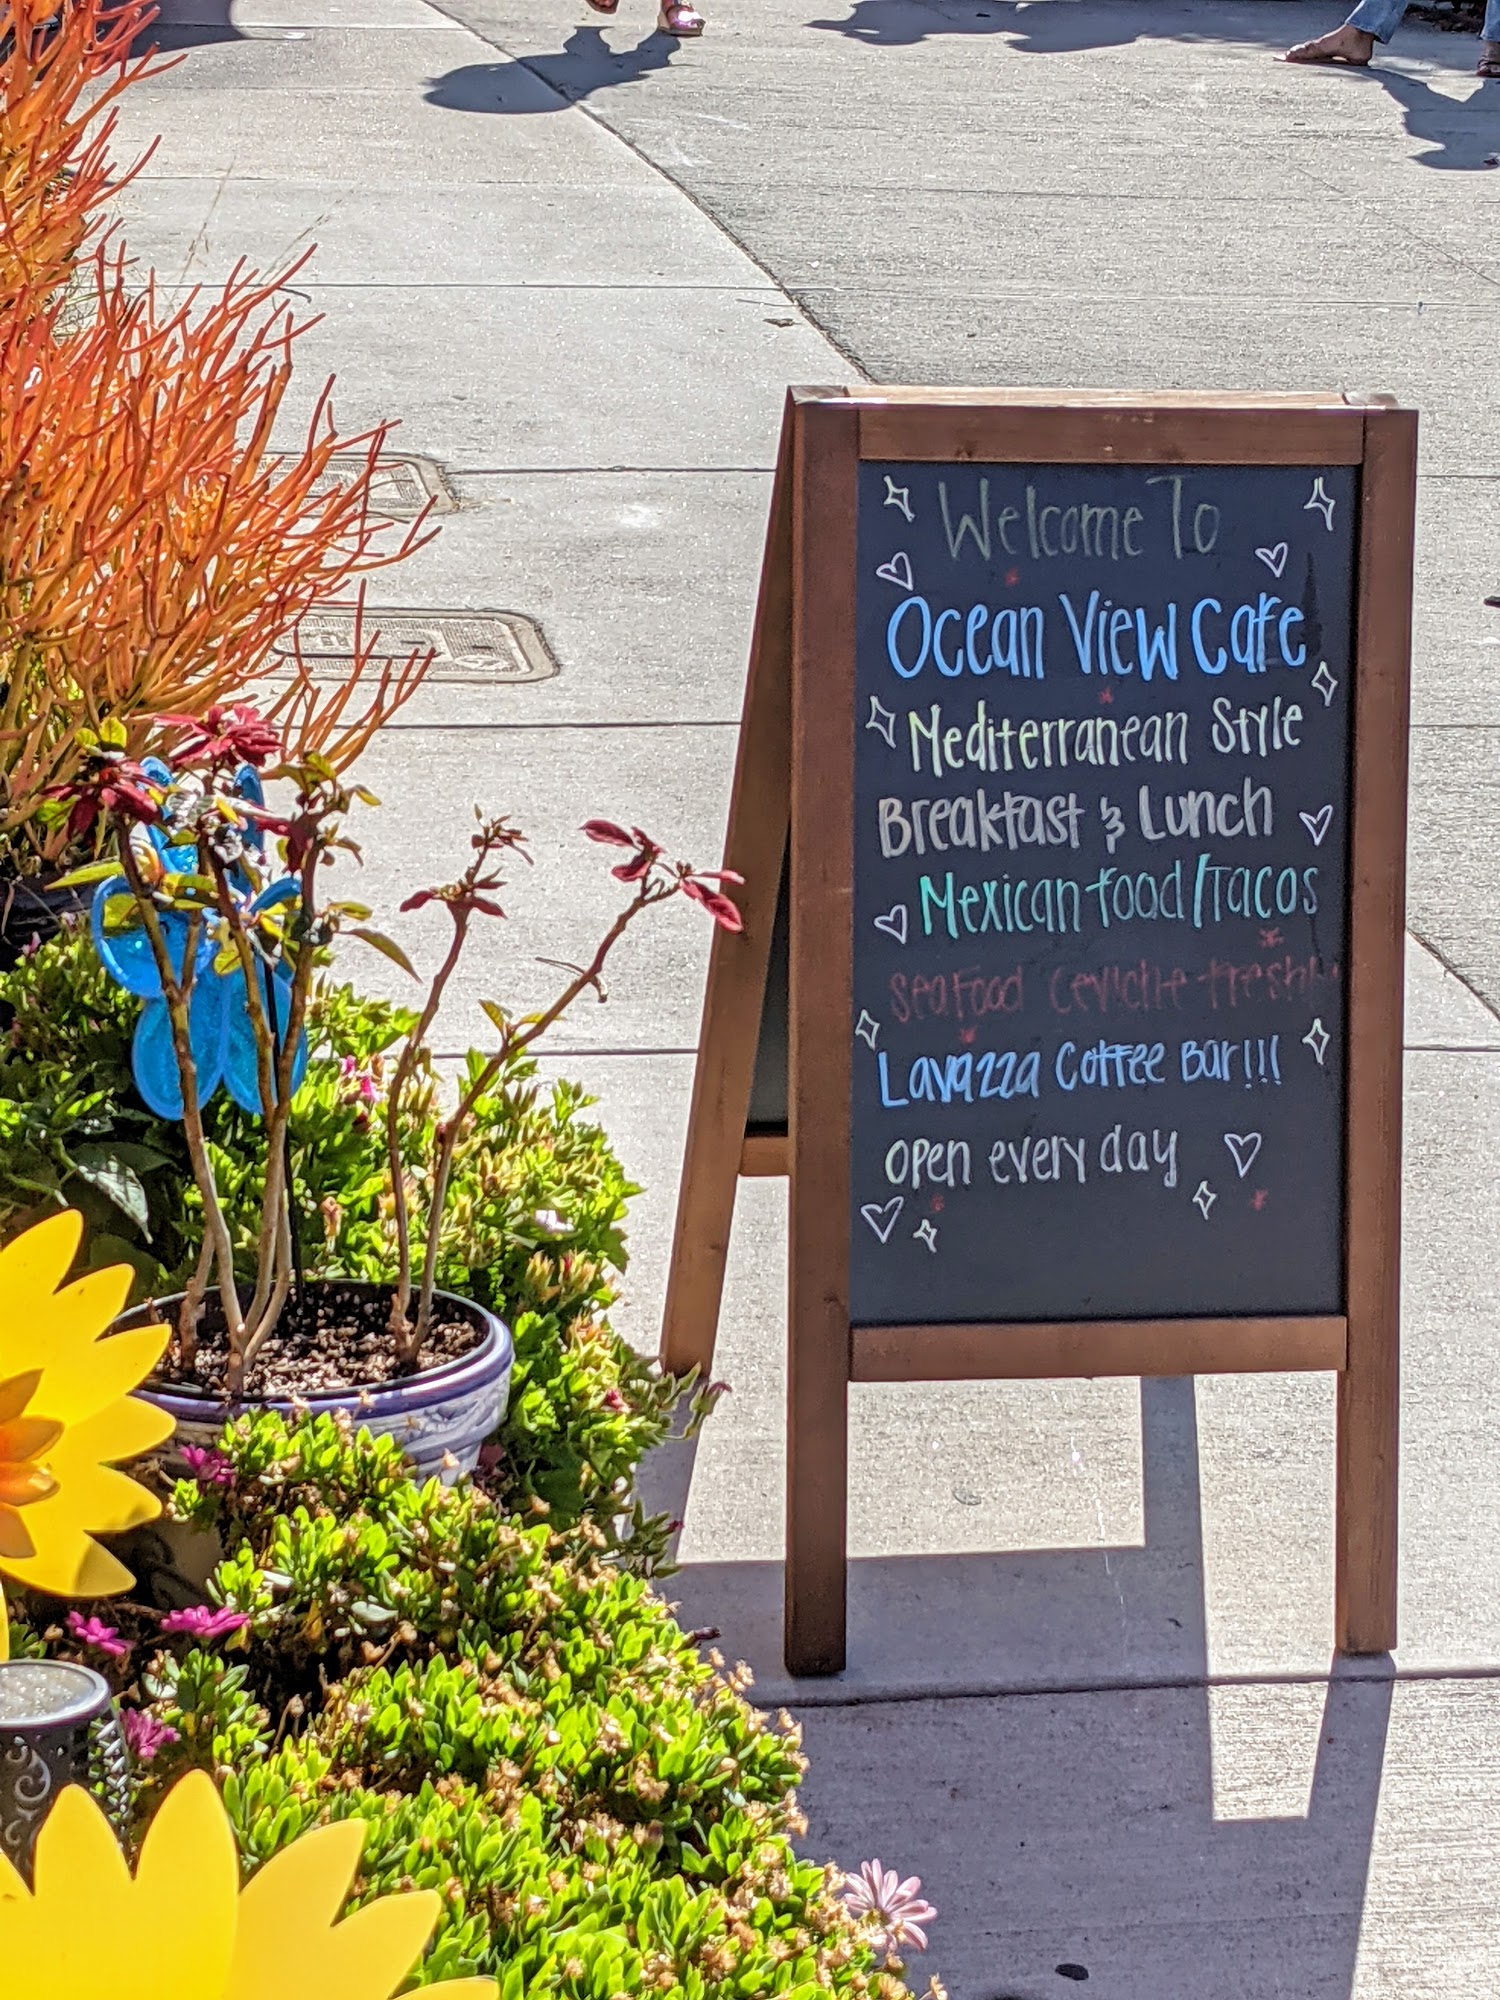 Welcome To
Ocean View Cafe
Mediterranean Style
Breakfast & Lunch
Mexican food/Tacos
Seafood Ceviche fresh!
Lavazza Coffee Bar!!!
open every day